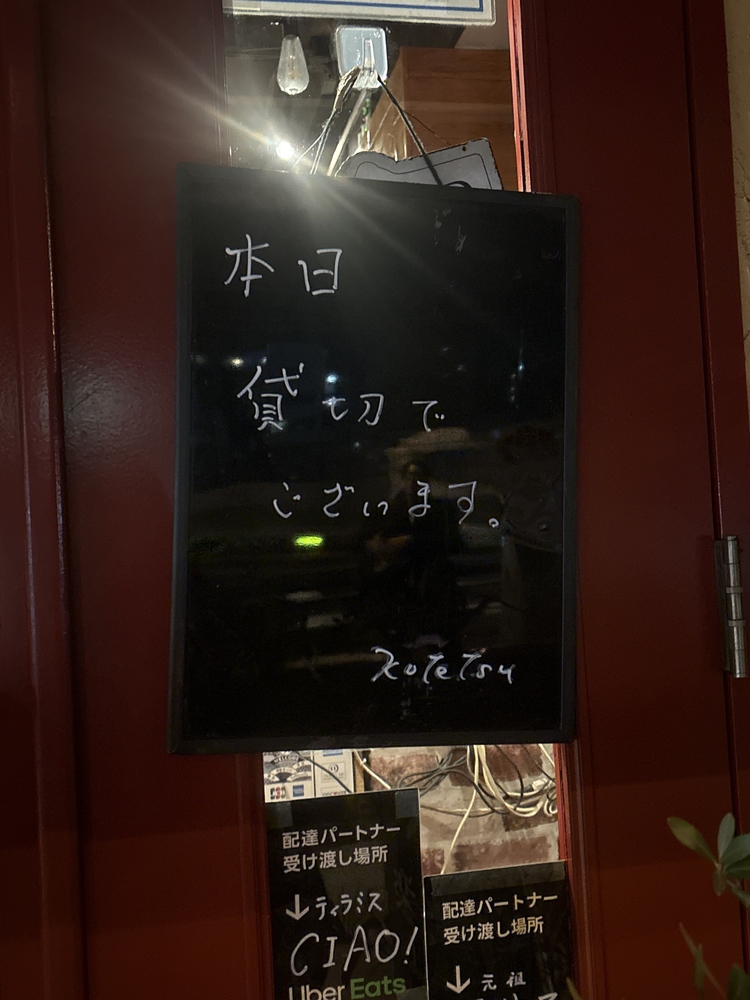 本日
貸切で
ございます。
KoTeTsu
配達パートナー
受け渡し場所
↓ティラミス
CIAO!
Uber Eats
配達パートナー
受け渡し場所
↓元祖